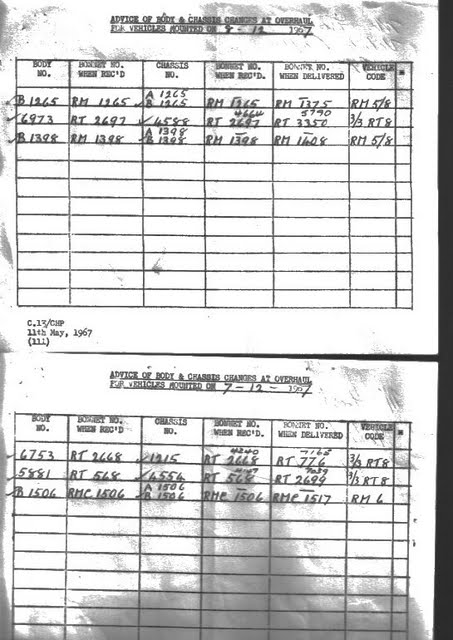 ADVICE OF BODY & CHASSIS CHANGES AT OVERHAUL
FOR VEHICLES MOUNTED ON 8-12 1967
BODY NO. BONNET NO. WHEN REC'D CHASSIS NO. BONNET NO. WHEN REC'D. BONNET NO. WHEN DELIVERED VEHICLE CODE *
B1265 RM 1265 A 1265 B 1265 RM 1265 RM 1375 RM 5/8
6973 RT 2697 4588 4664 RT 2697 5790 RT 3350 3/3 RT8
B1398 RM 1398 A 1398 B 1398 RM 1398 RM 1408 RM 5/8
C.13/CHP
11th May, 1967
(111)
ADVICE OF BODY & CHASSIS CHANGES AT OVERHAUL
FOR VEHICLES MOUNTED ON 7-12-1967
BODY NO. BONNET NO. WHEN REC'D. CHASSIS NO. BONNET NO. WHEN REC'D. BONNET NO. WHEN DELIVERED VEHICLE CODE *
6753 RT 2668 1215 4240 RT 2668 7165 RT 776 3/3 RT8
5881 RT 568 4554 RT 568 RT 2699 3/3 RT8
B 1506 RMC 1506 A 1506 B 1506 RMC 1506 RMC 1517 RM 6